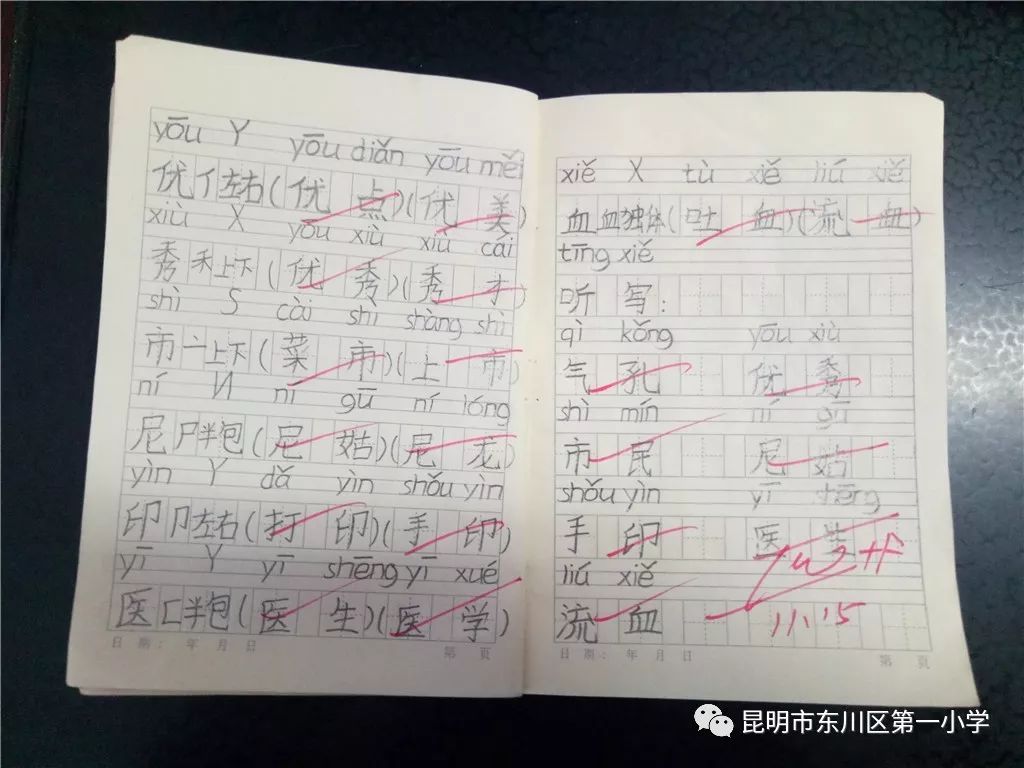 yōu Y yōu diǎn yōu měi
优 亻左右(优 点)(优 美)
xiù X yōu xiù xiù cái
秀 禾上下(优 秀)(秀 才)
shì S cài shì shàng shì
市 亠上下(菜 市)(上 市)
ní N ní gū ní lóng
尼 尸半包(尼 姑)(尼 龙)
yìn Y dǎ yìn shǒu yìn
印 卩左右(打 印)(手 印)
yī Y yī shēng yī xué
医 匚半包(医 生)(医 学)
日期： 年 月 日 第 页
xiě X tù xiě liú xiě
血 血独体(吐 血)(流 血)
tīng xiě
听 写：
qì kǒng yōu xiù
气 孔 优 秀
shì mín ní gū
市 民 尼 姑
shǒu yìn yī shēng
手 印 医 生
liú xiě
流 血
11.15
日期： 年 月 日 第 页
昆明市东川区第一小学